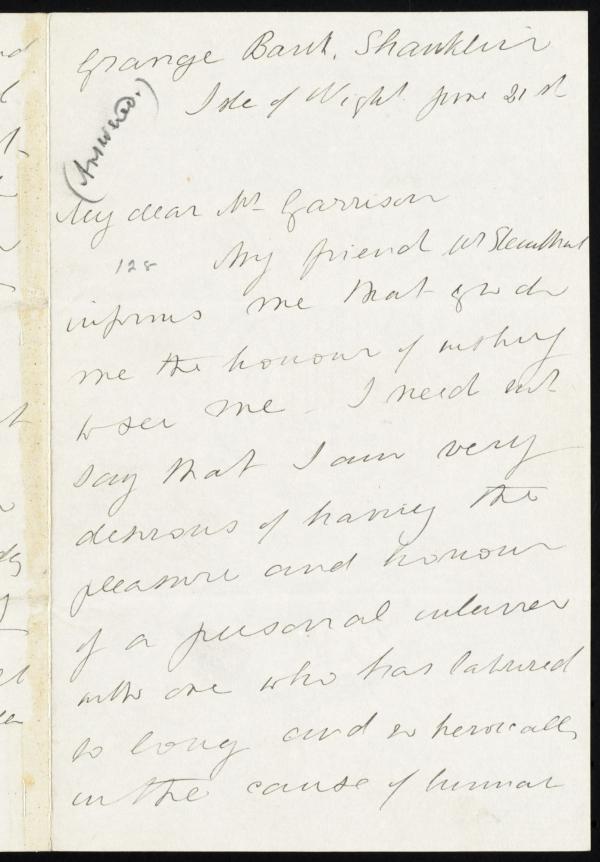 Grange Bank, Shanklin
Isle of Wight June 21st
(Answered.)
My dear Mr Garrison
128 My friend Mr Steinthal
informs me that you do
me the honour of wishing
to see me. I need not
say that I am very
desirous of having the
pleasure and honour
of a personal interview
with one who has laboured
so long and so heroically
in the cause of human